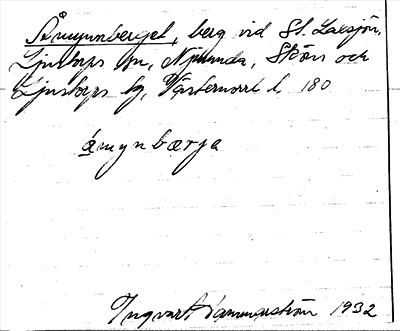 Åmynnberget, berg vid St. Laxsjön,
Ljustorps sn, Njurunda, Sköns och
Ljustorps tg, Västernorrl. l. 180
åmynbærje
Ingvar Hammarström 1932